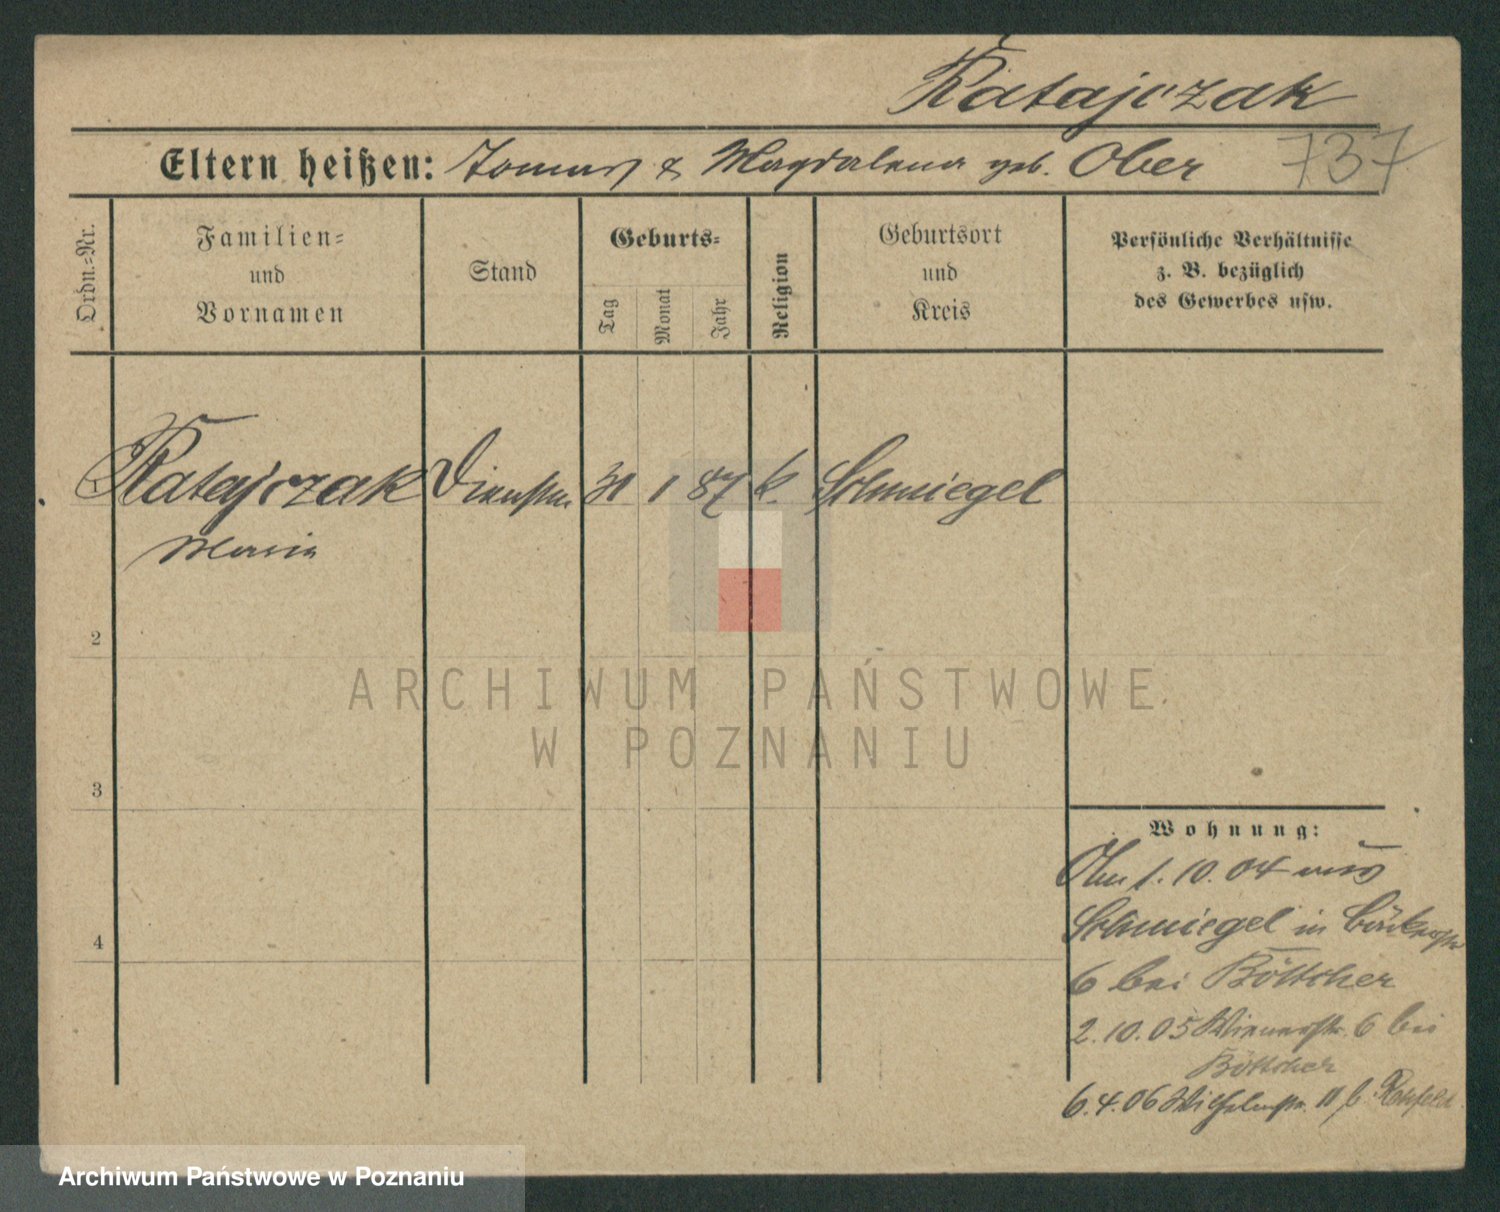 Ratajczak
Eltern heißen: Tomas & Magdalena geb. Ober
737
Ordn.=Nr.
Familien=
und
Vornamen
Stand
Geburts=
Tag
Monat
Jahr
Religion
Geburtsort
und
Kreis
Persönliche Verhältnisse
z. B. bezüglich
des Gewerbes usw.
Ratajczak Dienstm. 31 1 87 k. Schmiegel
Maria
2
3
4
Wohnung:
Am 1. 10. 04 aus
Schmiegel in Bäckerstr
6 bei Böttcher
2. 10. 05 Wienerstr. 6 bei
Böttcher
6. 4. 06 Wilhelmstr. 11 b.
ARCHIWUM PAŃSTWOWE
W POZNANIU
Archiwum Państwowe w Poznaniu